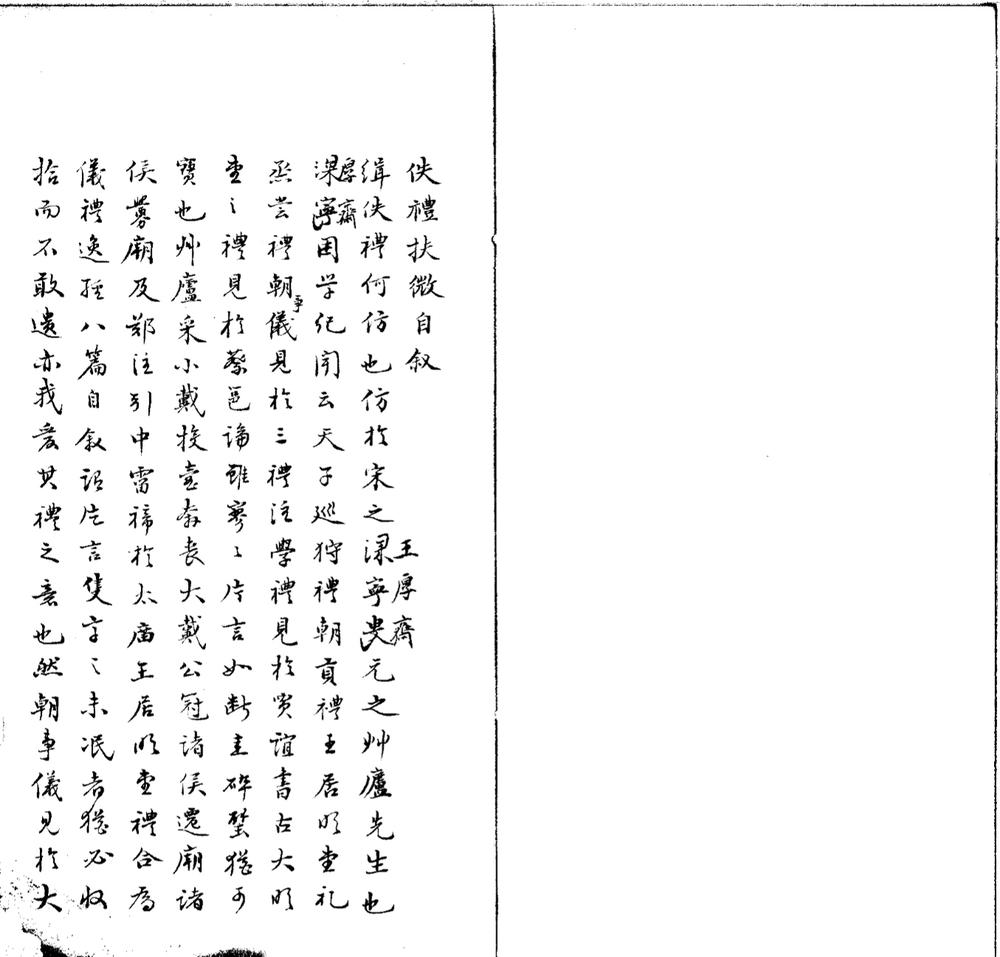 佚禮扶微自叙
緝佚禮何仿也仿於宋之深寧叟王厚齋元之艸廬先生也
深寧厚齋困学紀聞云天子巡狩禮朝貢禮王居明堂礼
烝嘗禮朝事儀見於三禮注學禮見於賈誼書古大明
堂之禮見於蔡邕論雖寥〻片言如斷圭碎璧猶可
寶也艸廬采小戴投壺奔喪大戴公冠諸侯遷廟諸
侯釁廟及鄭注引中霤禘於太廟王居明堂禮合為
儀禮逸經八篇自叙詔片言隻字之未泯者猶必收
拾而不敢遺亦我爰其禮之意也然朝事儀見於大